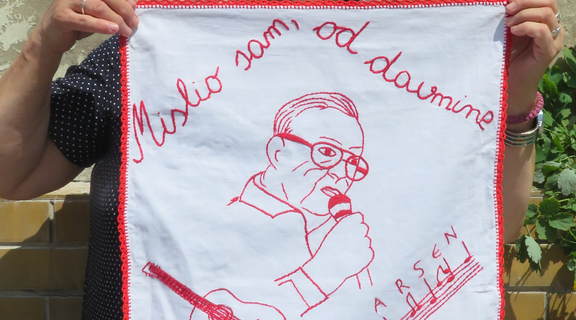 Mislio sam, od davnine
ARSEN